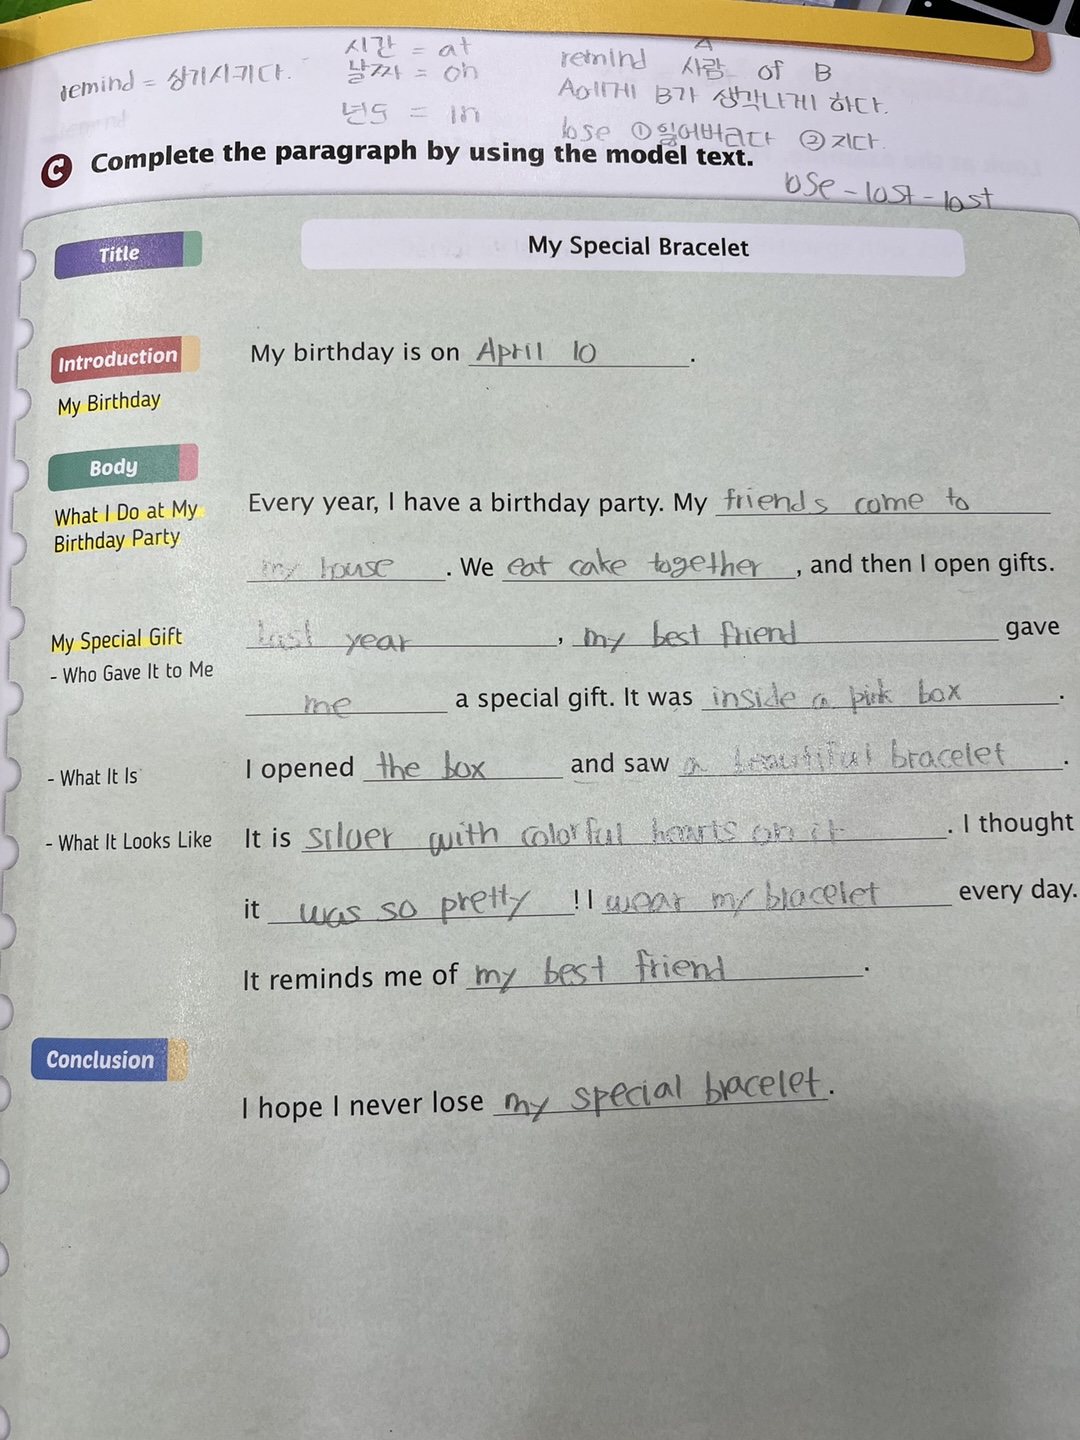 remind = 상기시키다.
시간 = at
날짜 = on
년도 = in
remind A 사람 of B
A에게 B가 생각나게 하다.
lose ①잃어버리다 ②지다.
lose - lost - lost
C Complete the paragraph by using the model text.
Title My Special Bracelet
Introduction My birthday is on April 10.
My Birthday
Body
What I Do at My Birthday Party
Every year, I have a birthday party. My friends come to
my house. We eat cake together, and then I open gifts.
My Special Gift
- Who Gave It to Me
last year, my best friend gave
me a special gift. It was inside a pink box.
- What It Is I opened the box and saw a beautiful bracelet.
- What It Looks Like It is silver with colorful hearts on it. I thought
it was so pretty! I wear my bracelet every day.
It reminds me of my best friend.
Conclusion
I hope I never lose my special bracelet.